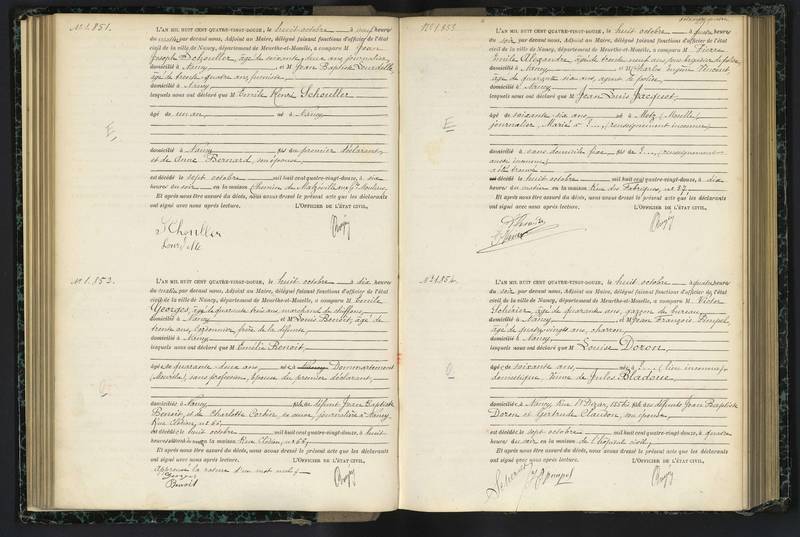 No 1.851.
L'AN MIL HUIT CENT QUATRE-VINGT-DOUZE, le huit octobre à neuf heures
du matin par devant nous, Adjoint au Maire, délégué faisant fonctions d'officier de l'état
civil de la ville de Nancy, département de Meurthe-et-Moselle, a comparu M Jean
Joseph Schouller, âgé de soixante deux ans, journalier
domicilié à Nancy et M Jean Baptiste
âgé de trente quatre ans,
domicilié à Nancy
lesquels nous ont déclaré que M Emile René Schouller
âgé de un an né à Nancy
E
domicilié à Nancy fils du premier déclarant
et de Anne Bernard son épouse
est décédé le sept octobre mil huit cent quatre-vingt-douze, à dix
heures du soir en la maison chemin de Malzéville aux Gds Moulins
Et après nous être assuré du décès, nous avons dressé le présent acte que les déclarants
ont signé avec nous après lecture. L'OFFICIER DE L'ÉTAT CIVIL,
Schouller
No 1.852.
L'AN MIL HUIT CENT QUATRE-VINGT-DOUZE, le huit octobre à dix heures
du matin par devant nous, Adjoint au Maire, délégué faisant fonctions d'officier de l'état
civil de la ville de Nancy, département de Meurthe-et-Moselle, a comparu M Emile
Georges, âgé de quarante trois ans, marchand de chiffons
domicilié à Nancy et M Louis Benoit, âgé de
trente ans, frère de la défunte
domicilié à Nancy
lesquels nous ont déclaré que M Emélie Benoit,
âgée de quarante deux ans née à Nancy Dommartemont
(Meurthe) sans profession, épouse du premier déclarant,
domiciliée à Nancy fille de défunt Jean Baptiste
Benoit, et de Charlotte sa veuve, journalière à Nancy,
Rue no 66
est décédée le huit octobre mil huit cent quatre-vingt-douze, à huit
heures du matin en la maison Rue no 66
Et après nous être assuré du décès, nous avons dressé le présent acte que les déclarants
ont signé avec nous après lecture. L'OFFICIER DE L'ÉTAT CIVIL,
Approuvé la rature d'un mot nul
Georges
Benoit
No 1.853.
L'AN MIL HUIT CENT QUATRE-VINGT-DOUZE, le huit octobre à quatre heures
du soir par devant nous, Adjoint au Maire, délégué faisant fonctions d'officier de l'état
civil de la ville de Nancy, département de Meurthe-et-Moselle, a comparu M Pierre
Emile Alexandre, âgé de trente neuf ans, sous brigadier de police
domicilié à Nancy et M Charles Eugène
âgé de quarante six ans, agent de police
domicilié à Nancy
lesquels nous ont déclaré que M Jean Louis Jacquot,
âgé de soixante six ans né à Metz (Moselle)
journalier, Marié à ? ..., (renseignement inconnu)
E
domicilié à sans domicile fixe fils de ? ..., (renseignements
aussi inconnus)
a été trouvé
décédé le huit octobre mil huit cent quatre-vingt-douze, à dix
heures du matin en la maison Rue des Fabriques, no 27
Et après nous être assuré du décès, nous avons dressé le présent acte que les déclarants
ont signé avec nous après lecture. L'OFFICIER DE L'ÉTAT CIVIL,
No 1.854.
L'AN MIL HUIT CENT QUATRE-VINGT-DOUZE, le huit octobre à quatre heures
du soir par devant nous, Adjoint au Maire, délégué faisant fonctions d'officier de l'état
civil de la ville de Nancy, département de Meurthe-et-Moselle, a comparu M Victor
âgé de quarante ans, garçon de bureau
domicilié à Nancy et M Jean François
âgé de quatre vingts ans, charron
domicilié à Nancy
lesquels nous ont déclaré que M Louise Doron,
âgée de soixante ans, née à ? ... (lieu inconnu)
domestique, Veuve de Jules Bladone
domiciliée à Nancy, Rue St Dizier, 155 fille des défunts Jean Baptiste
Doron et Gertrude Claudon, son épouse
est décédée le sept octobre mil huit cent quatre-vingt-douze, à quatre
heures du soir, en la maison de l'hôpital civil
Et après nous être assuré du décès, nous avons dressé le présent acte que les déclarants
ont signé avec nous après lecture. L'OFFICIER DE L'ÉTAT CIVIL,